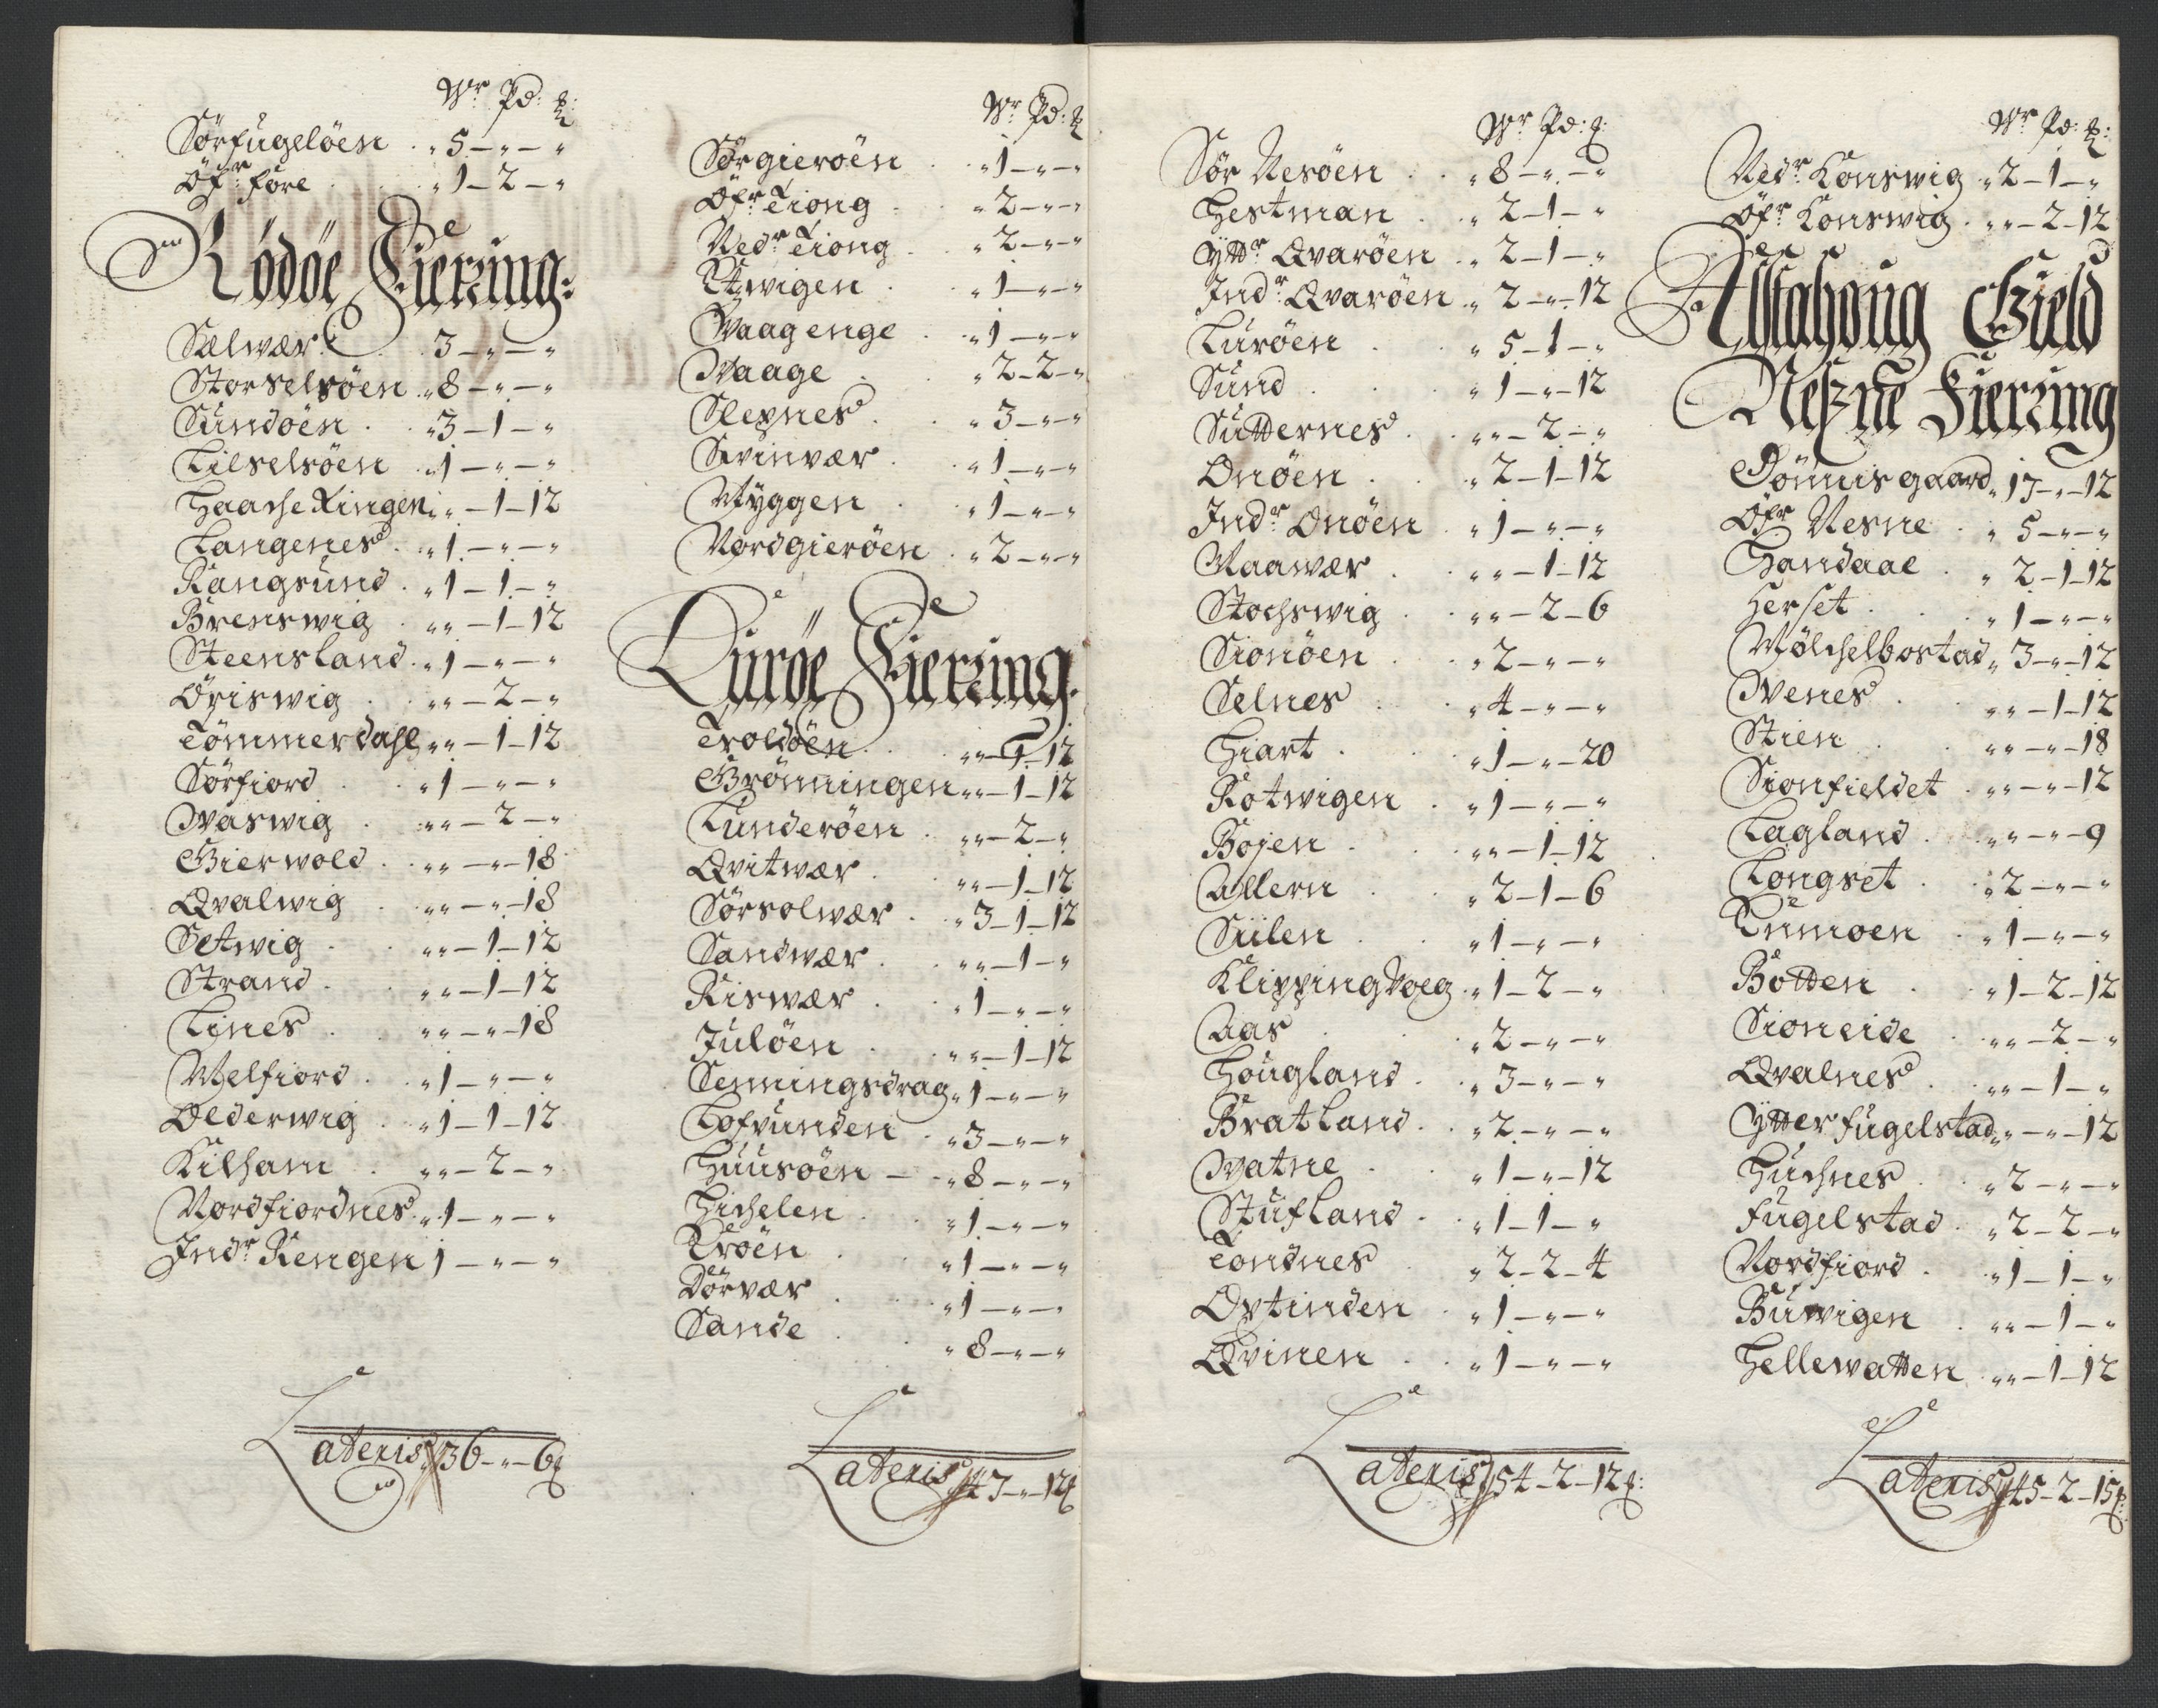 Wr Pd: ℔:
Sörfugelöen . „ 5 – „ – „
Öfr före . . „ 1 – 2 – „
Rödöe Fierring:
Sælwær . . 3 – „ – „
Storselsöen „ 8 – „ – „
Sundöen . . „ 3 – 1 – „
Lilselsöen . „ 1 – „ – „
Haacheringen „ „ – 1 – 12
Langenes . . „ 1 – „ – „
Rangsund . „ 1 – 1 – „
Brenswig . „ „ – 1 – 12
Steensland . „ 1 – „ – „
Öriswig . „ „ – 2 – „
Tömmerdahl „ „ – 1 – 12
Sörfiord . . „ 1 – „ – „
Waswig . „ „ – 2 – „
Gierwold . . „ „ – „ – 18
Qvalwig . „ „ – „ – 18
Setwig . . „ „ – 1 – 12
Strand . . „ „ – 1 – 12
Lines . . „ „ – „ – 18
Melfiord . . „ 1 – „ – „
Olderwig . . „ 1 – 1 – 12
Kilham . . „ „ – 2 – „
Nordfiordnes . „ 1 – „ – „
Indr Rengen 1 – „ – „
Lateris 36 – „ – 6 ℔
Wr Pd: ℔
Sörgieröen . . „ 1 – „ – „
Öfr Tiong . „ 2 – „ – „
Nedr Tiong . „ 2 – „ – „
Utwigen . „ 1 – „ – „
Waagenge . „ 1 – „ – „
Waage . „ 2 – 2 – „
Slepnes . . „ 3 – „ – „
Svinvær . . „ 1 – „ – „
Myggen . . „ 1 – „ – „
Nordgieröen . „ 2 – „ – „
Luröe Fierring.
Troldöen . . „ „ – 1 – 12
Grönningen „ „ – 1 – 12
Lunderöen . „ „ – 2 – „
Qvitwær . „ „ – 1 – 12
Sörsolwær . „ 3 – 1 – 12
Sandwær . . „ „ – 1 – „
Riswær . . „ 1 – „ – „
Julöen . . „ „ – 1 – 12
Senningsdrag „ 1 – „ – „
Lofvunden . „ 3 – „ – „
Huusöen – . „ 8 – „ – „
Hichelen . . „ 1 – „ – „
Kröen . . „ 1 – „ – „
Dörvær . . „ 1 – „ – „
Sande . . „ 8 – „ – „
Lateris 47 – „ – 12 ℔
Wr Pd: ℔:
Sör Nesöen . . „ 8 – „ – „
Hestman . . „ 2 – 1 – „
Yttr Qvaröen . „ 2 – 1 – „
Indr Qvaröen . „ 2 – „ – 12
Luröen . . „ 5 – 1 – „
Sund . . „ 1 – „ – 12
Sutternes . . „ „ – 2 – „
Onöen . . „ 2 – 1 – 12
Indr Onöen . „ 1 – „ – „
Maawær . . „ „ – 1 – 12
Stochswig . . „ „ – 2 – 6
Sionöen . . „ 2 – „ – „
Selnes . . „ 4 – „ – „
Hiart . . „ 1 – „ – 20
Rotwigen . . „ 1 – „ – „
Bojen . . „ „ – 1 – 12
Allern . . „ 2 – 1 – 6
Siilen . . „ 1 – „ – „
Klippingvoeg . „ 1 – 2 – „
Aas . . „ 2 – „ – „
Hougland . . „ 3 – „ – „
Bratland . . „ 2 – „ – „
Watne . . „ 1 – „ – 12
Stufland . . „ 1 – 1 – „
Tondnes . . „ 2 – 2 – 4
Ovtinden . . „ 1 – „ – „
Qvinen . . „ 1 – „ – „
Lateris 54 – 2 – 12 ℔:
Wr Pd: ℔:
Nedr Konswig . „ 2 – 1 – „
Öfr Konswig . „ „ – 2 – 12
Alstahoug Gield
Neszne Fierring
Dönnisgaard „ 17 – „ – 12
Öfr Nesne . „ 5 – „ – „
Handaal . „ 2 – 1 – 12
Herset . . „ 1 – „ – „
Mölchelbostad „ 3 – „ – 12
Wenes . . „ „ – 1 – 12
Stien . . „ „ – „ – 18
Sionfieldet . „ „ – „ – 12
Lagland . . „ „ – „ – 9
Longset . . „ 2 – „ – „
Tunmoen . . „ 1 – „ – „
Botten . . „ 1 – 2 – 12
Sioneide . . „ „ – 2 – „
Qvalnes . . „ „ – 1 – „
Ytterfugelstad „ „ – „ – 12
Huchnes . . „ 2 – „ – „
Fugelstad . „ 2 – 2 – „
Nordfiord . . „ 1 – 1 – „
Buwigen . . „ „ – 1 – „
Hellewatten . „ „ – 1 – 12
Lateris 45 – 2 – 15 ℔: